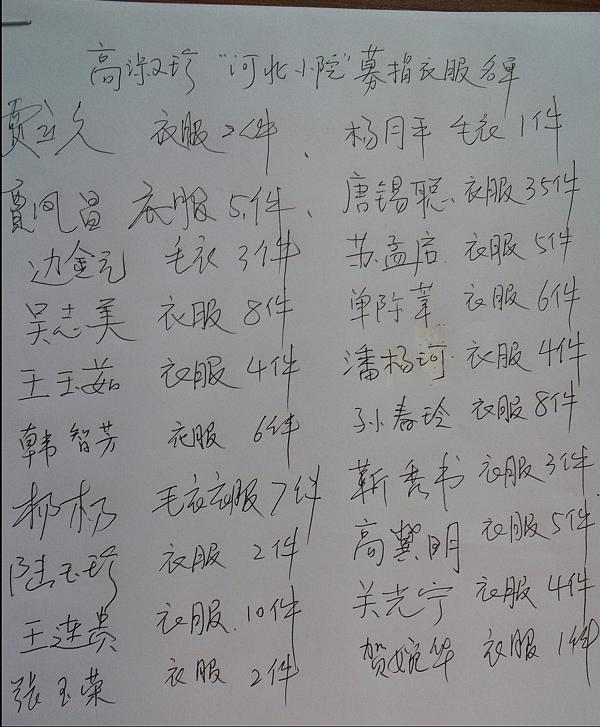 高淑珍"河北小院"募捐衣服名单
贾立久 衣服2件、杨月平 毛衣1件
贾凤昌 衣服5件、唐锡聪 衣服35件
边金元 毛衣3件 苏孟启 衣服5件
吴志美 衣服8件 单际苇 衣服6件
王玉茹 衣服4件 潘杨珂 衣服4件
韩智芳 衣服6件 孙春玲 衣服8件
杨杨 毛衣衣服7件 靳秀书 衣服3件
陆玉珍 衣服2件 高冀明 衣服5件
王连贵 衣服10件 关光宁 衣服4件
张玉荣 衣服2件 贺婉华 衣服1件